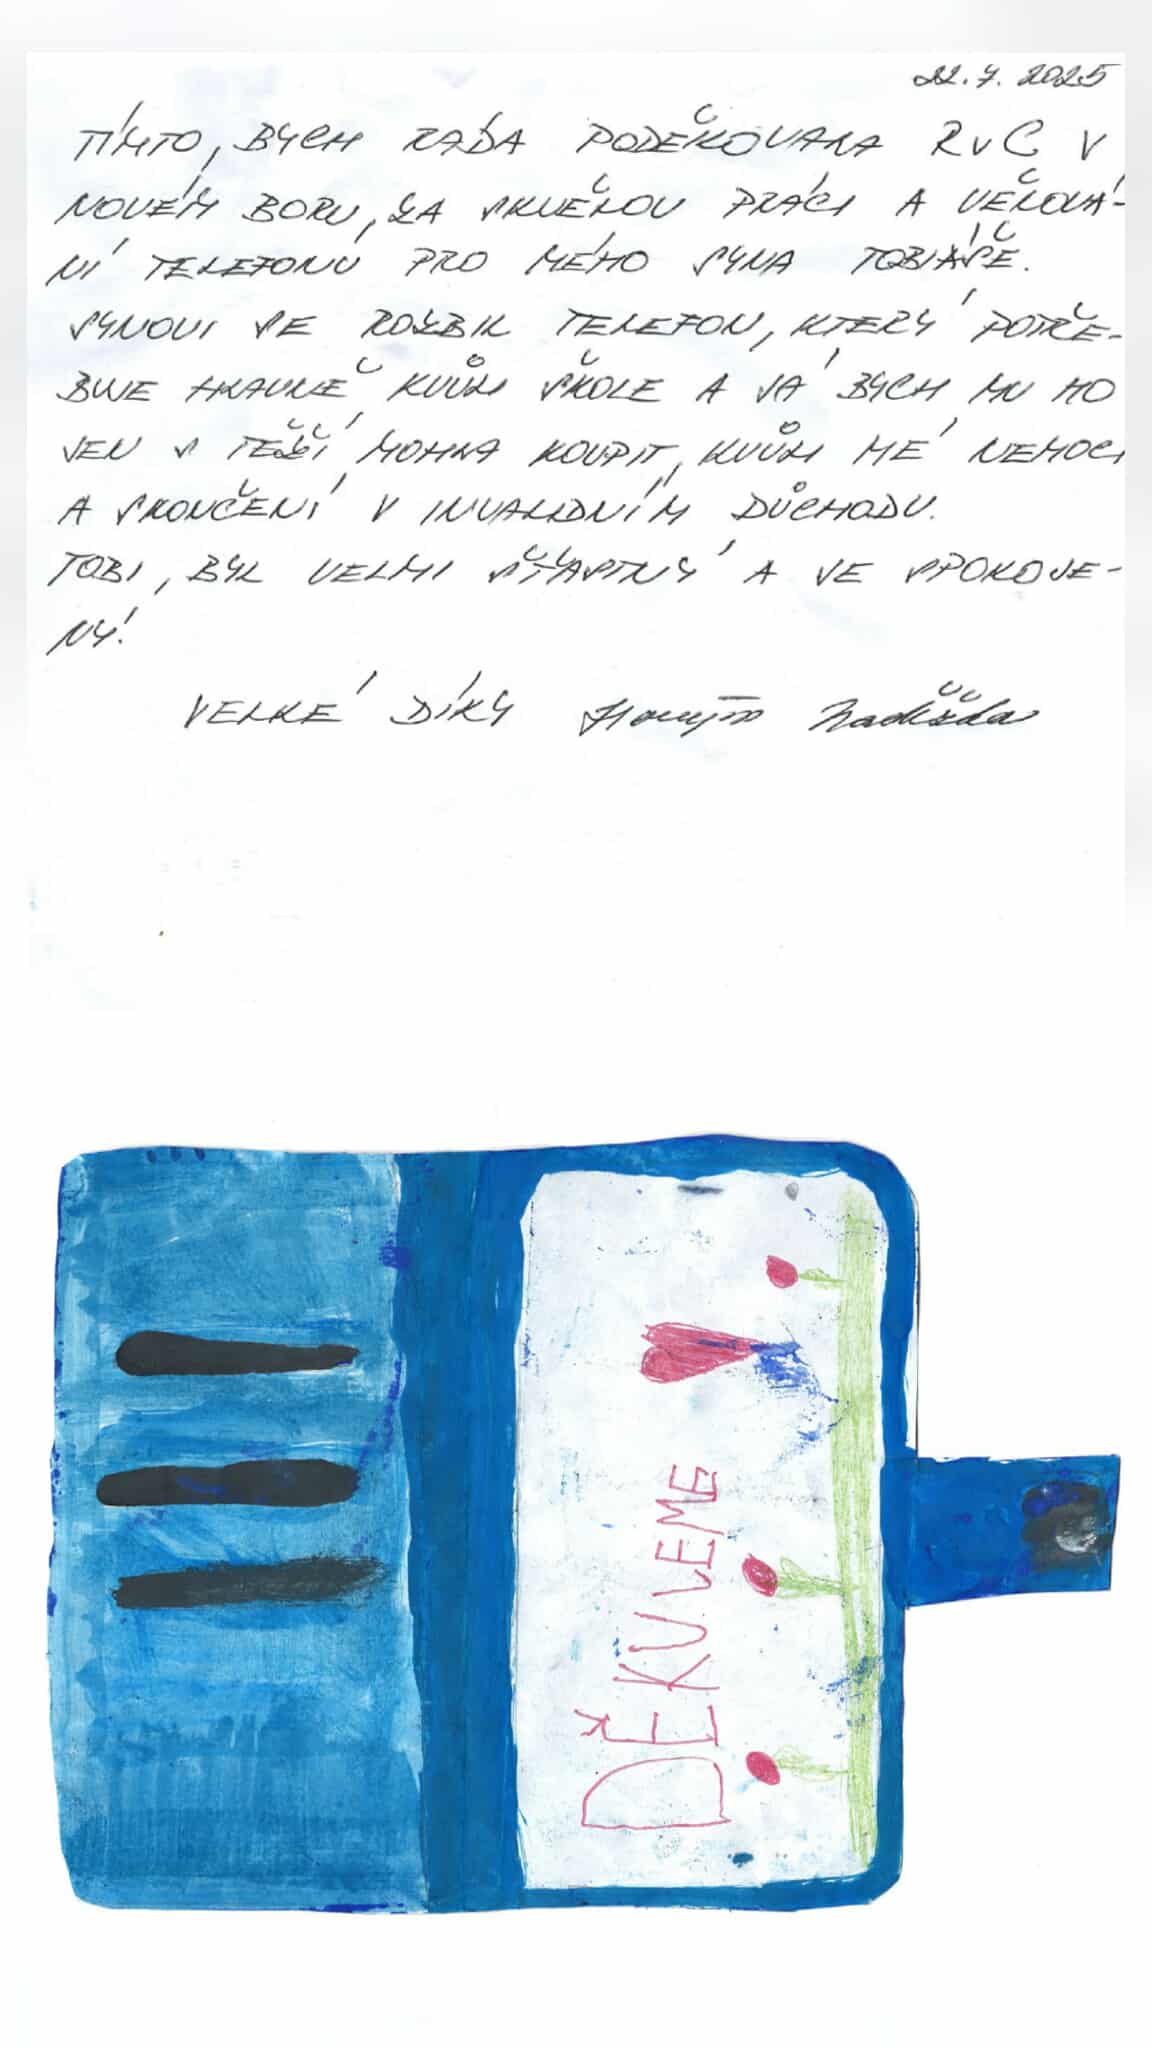 22.7.2025
TÍMTO, BYCH RÁDA PODĚKOVALA RVC V
NOVÉM BORU, ZA SKVĚLOU PRÁCI A VĚNOVÁ-
NÍ TELEFONU PRO MÉHO SYNA TOBIÁŠE.
SYNOVI SE ROZBIL TELEFON, KTERÝ POTŘE-
BUJE HLAVNĚ KVŮLI ŠKOLE A JÁ BYCH MU HO
JEN S TĚŽÍ MOHLA KOUPIT, KVŮLI MÉ NEMOCI
A SKONČENÍ V INVALIDNÍM DŮCHODU.
TOBI, BYL VELMI ŠŤASTNÝ A JE SPOKOJE-
NÝ!
VELKÉ DÍKY Naděžda
DĚKUJEME